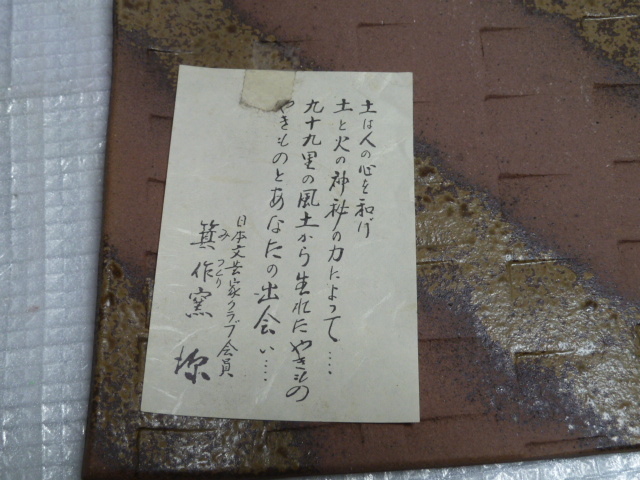 土は人の心を和げ
土と火の神秘の力によって‥‥
九十九里の風土から生れたやきもの
やきものとあなたの出会い‥‥
日本文芸家クラブ会員
みつくり
箕作窯